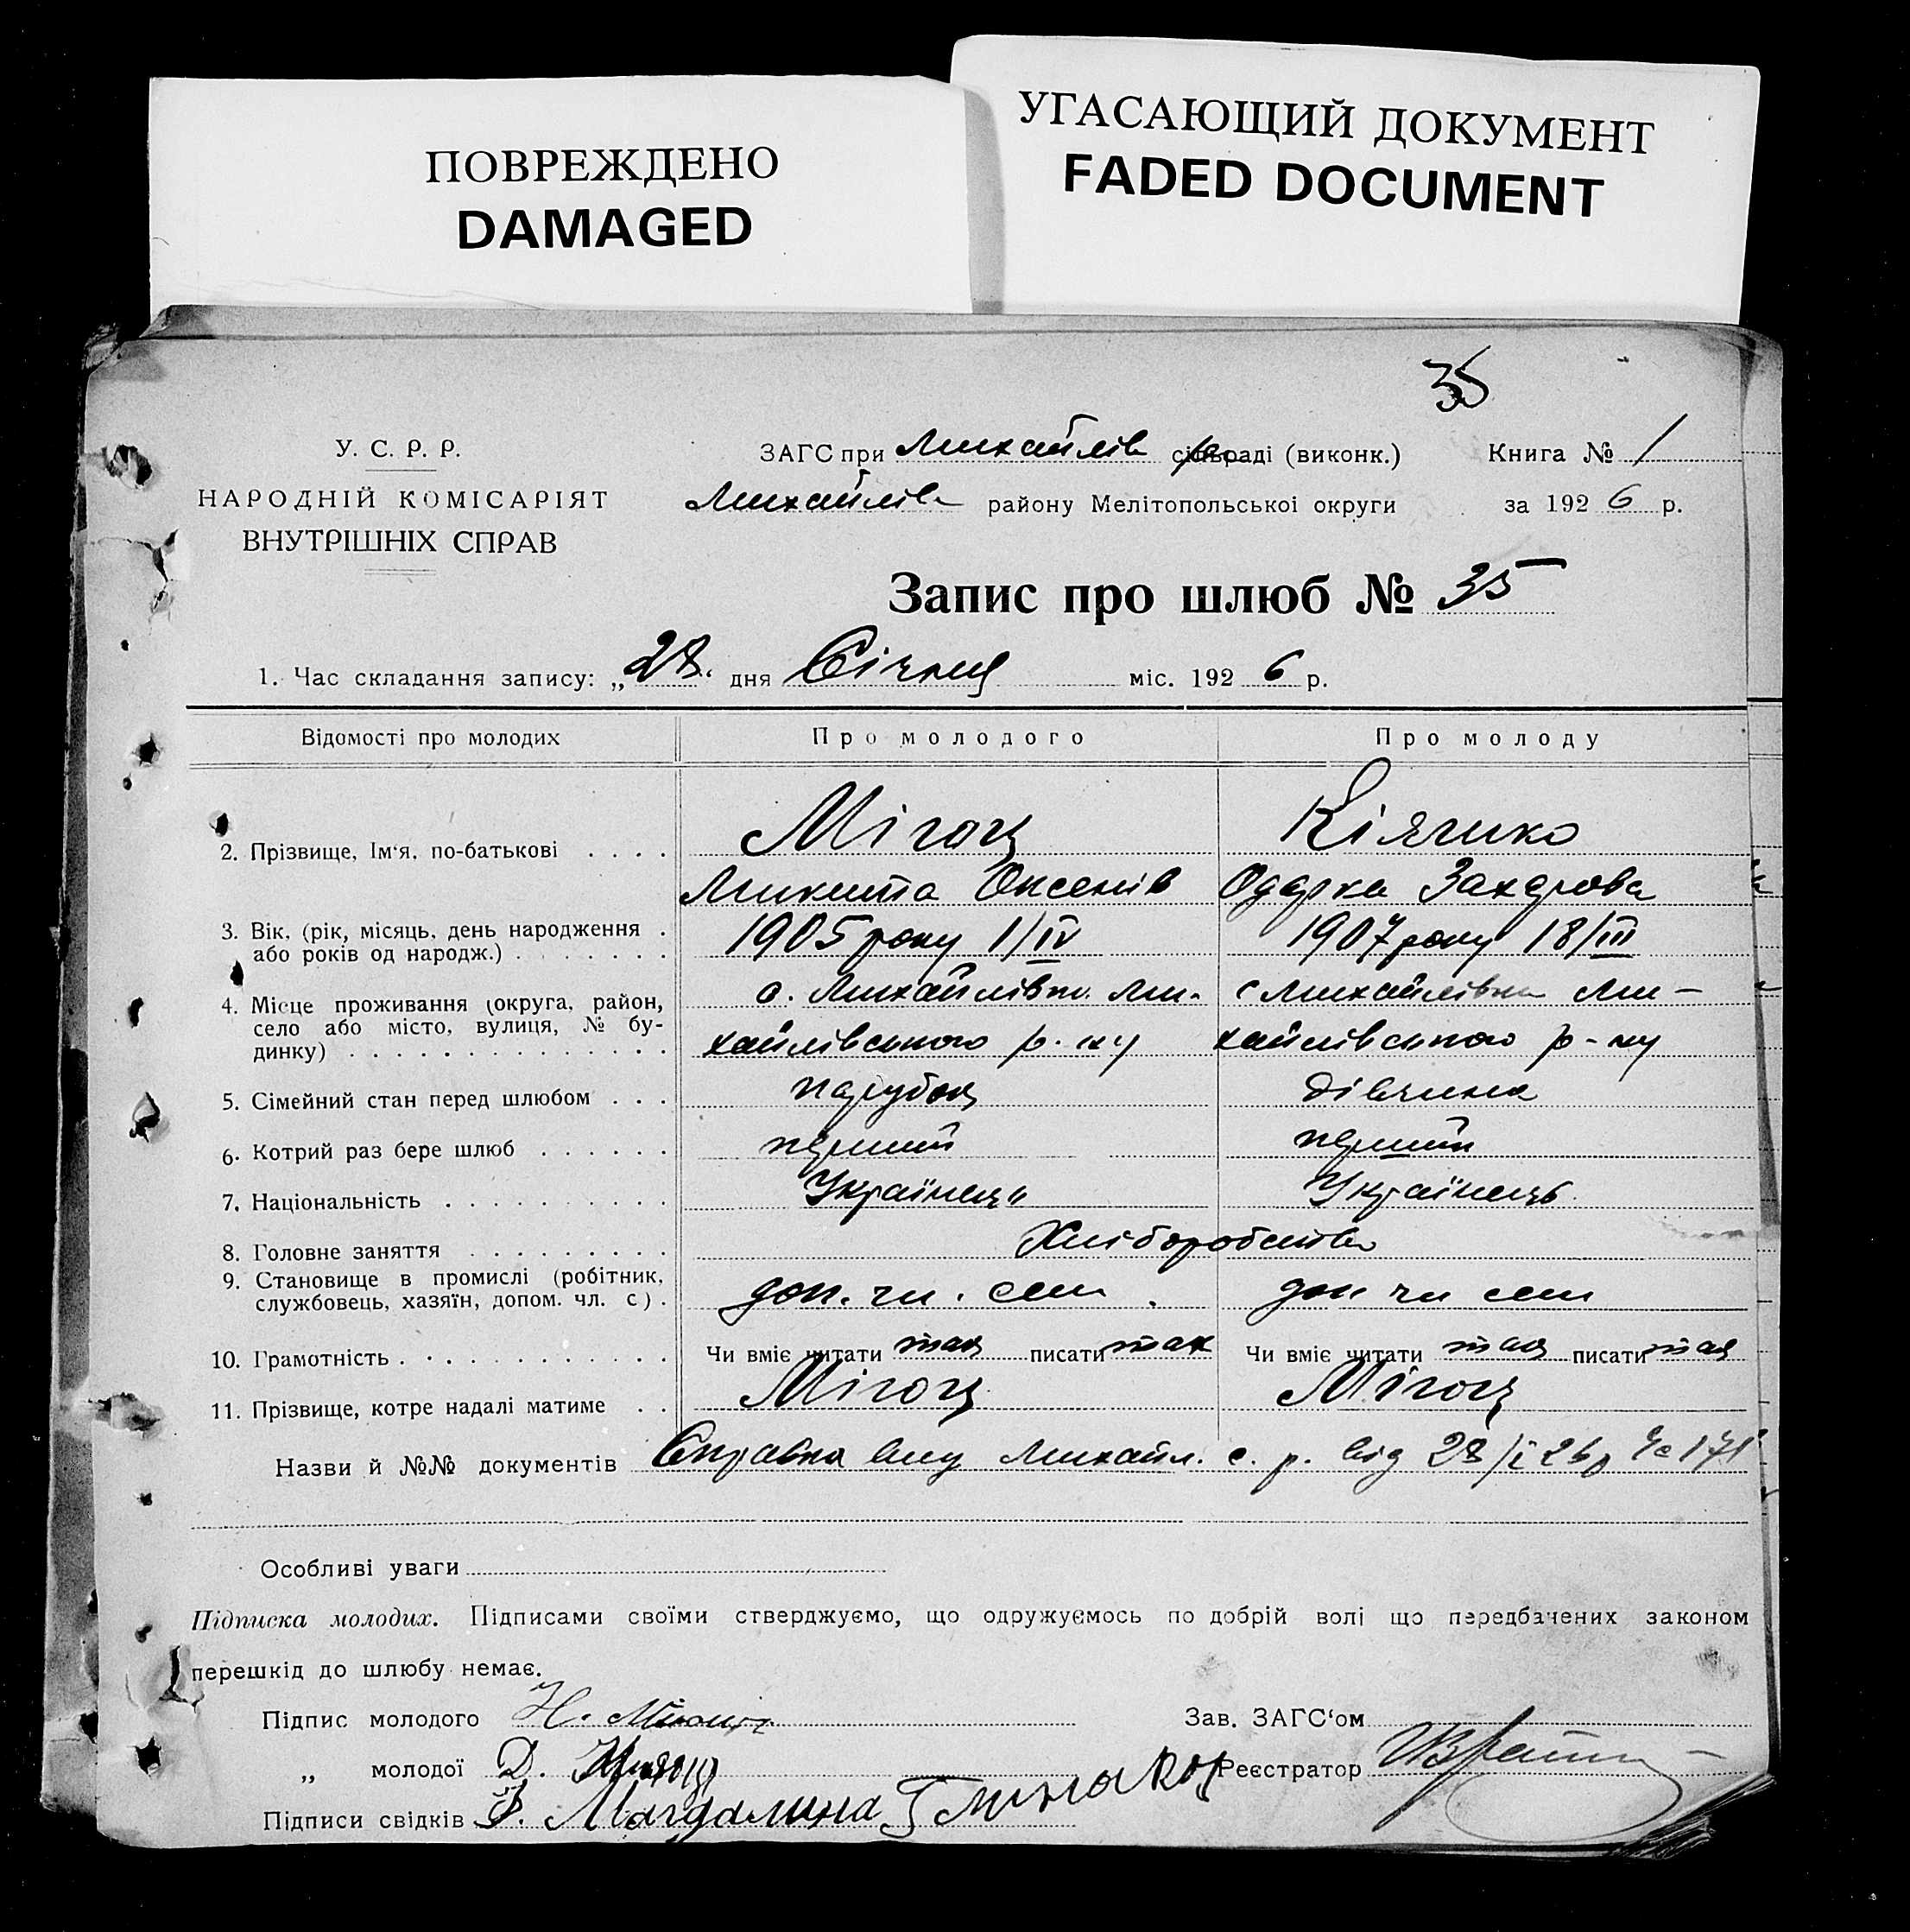 ПОВРЕЖДЕНО
DAMAGED
УГАСАЮЩИЙ ДОКУМЕНТ
FADED DOCUMENT
35
У. С. Р. Р.
НАРОДНІЙ КОМІСАРІЯТ
ВНУТРІШНІХ СПРАВ
ЗАГС при Михайлів раді (виконк.) Книга № 1
Михайлів району Мелітопольської округи за 1926 р.
Запис про шлюб № 35
1. Час складання запису: „28. дня Січня міс. 1926 р.
Відомості про молодих Про молодого Про молоду
2. Прізвище, Ім'я, по-батькові . . . . Мігоц Кіяшко
Микита Оксенів Одарка Захарова
3. Вік, (рік, місяць, день народження . 1905 року 1/IV 1907 року 18/III
або років од народж.) . . . . . . .
4. Місце проживання (округа, район, с. Михайлівка Ми- с Михайлівка Ми-
село або місто, вулиця, № бу-
динку) . . . . . . . . . . . . . . хайлівського р-ну хайлівського р-ну
5. Сімейний стан перед шлюбом . . . парубок дівчина
6. Котрий раз бере шлюб . . . . . . перший перший
7. Національність . . . . . . . . . . Українець Українець
8. Головне заняття . . . . . . . . . Хліборобство
9. Становище в промислі (робітник,
службовець, хазяїн, допом. чл. с) . доп. чл. сем. доп чл сем
10. Грамотність . . . . . . . . . . . . Чи вміє читати так писати так Чи вміє читати так писати так
11. Прізвище, котре надалі матиме . . Мігоц Мігоц
Назви й №№ документів Справка вид Михайл. с. р. від 28/I 26р № 171
Особливі уваги
Підписка молодих. Підписами своїми стверджуємо, що одружуємось по добрій волі що передбачених законом
перешкід до шлюбу немає.
Підпис молодого Н. Зав. ЗАГС'ом
„ молодої Д. Реєстратор
Підписи свідків Магдалина